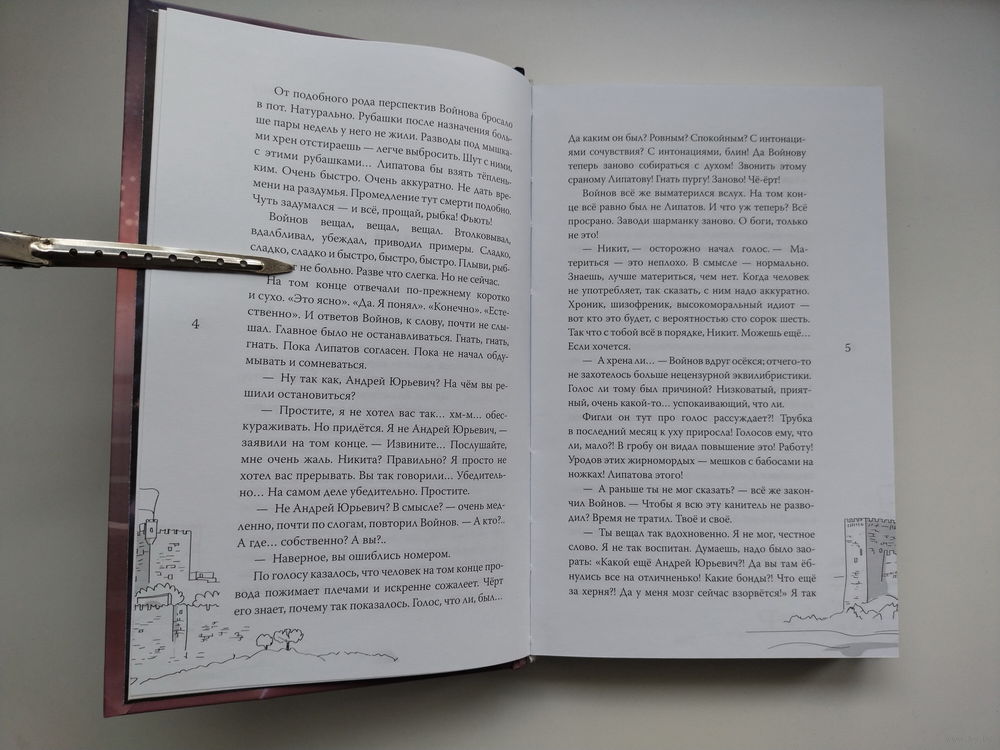 От подобного рода перспектив Войнова бросало
в пот. Натурально. Рубашки после назначения боль-
ше пары недель у него не жили. Разводы под мышка-
ми хрен отстираешь — легче выбросить. Шут с ними,
с этими рубашками… Липатова бы взять тёплень-
ким. Очень быстро. Очень аккуратно. Не дать вре-
мени на раздумья. Промедление тут смерти подобно.
Чуть задумался — и всё, прощай, рыбка! Фьють!
Войнов вещал, вещал, вещал. Втолковывал,
вдалбливал, убеждал, приводил примеры. Сладко,
сладко, сладко и быстро, быстро, быстро. Плыви, рыб-
не больно. Разве что слегка. Но не сейчас.
На том конце отвечали по-прежнему коротко
и сухо. «Это ясно». «Да. Я понял». «Конечно». «Есте-
ственно». И ответов Войнов, к слову, почти не слы-
шал. Главное было не останавливаться. Гнать, гнать,
гнать. Пока Липатов согласен. Пока не начал обду-
мывать и сомневаться.
— Ну так как, Андрей Юрьевич? На чём вы ре-
шили остановиться?
— Простите, я не хотел вас так… хм-м… обес-
кураживать. Но придётся. Я не Андрей Юрьевич, —
заявили на том конце. — Извините… Послушайте,
мне очень жаль. Никита? Правильно? Я просто не
хотел вас прерывать. Вы так говорили… Убедитель-
но… На самом деле убедительно. Простите.
— Не Андрей Юрьевич? В смысле? — очень мед-
ленно, почти по слогам, повторил Войнов. — А кто?..
А где… собственно? А вы?..
— Наверное, вы ошиблись номером.
По голосу казалось, что человек на том конце про-
вода пожимает плечами и искренне сожалеет. Чёрт
его знает, почему так показалось. Голос, что ли, был…
4
Да каким он был? Ровным? Спокойным? С интонаци-
ями сочувствия? С интонациями, блин! Да Войнову
теперь заново собираться с духом! Звонить этому
сраному Липатову! Гнать пургу! Заново! Чё-ёрт!
Войнов всё же выматерился вслух. На том кон-
це всё равно был не Липатов. И что уж теперь? Всё
просрано. Заводи шарманку заново. О боги, только
не это!
— Никит, — осторожно начал голос. — Ма-
териться — это неплохо. В смысле — нормально.
Знаешь, лучше материться, чем нет. Когда человек
не употребляет, так сказать, с ним надо аккуратно.
Хроник, шизофреник, высокоморальный идиот —
вот кто это будет, с вероятностью сто сорок шесть.
Так что с тобой всё в порядке, Никит. Можешь ещё…
Если хочется.
— А хрена ли… — Войнов вдруг осёкся; отчего-то
не захотелось больше нецензурной эквилибристики.
Голос ли тому был причиной? Низковатый, прият-
ный, очень какой-то… успокаивающий, что ли.
Фигли он тут про голос рассуждает?! Трубка
в последний месяц к уху приросла! Голосов ему, что
ли, мало?! В гробу он видал повышение это! Работу!
Уродов этих жирномордых — мешков с бабосами на
ножках! Липатова этого!
— А раньше ты не мог сказать? — всё же закон-
чил Войнов. — Чтобы я всю эту канитель не разво-
дил? Время не тратил. Твоё и своё.
— Ты вещал так вдохновенно. Я не мог, честное
слово. Я не так воспитан. Думаешь, надо было зао-
рать: «Какой ещё Андрей Юрьевич?! Да вы там ёб-
нулись все на отличненько! Какие бонды?! Что ещё
за херня?! Да у меня мозг сейчас взорвётся!» Я так
5